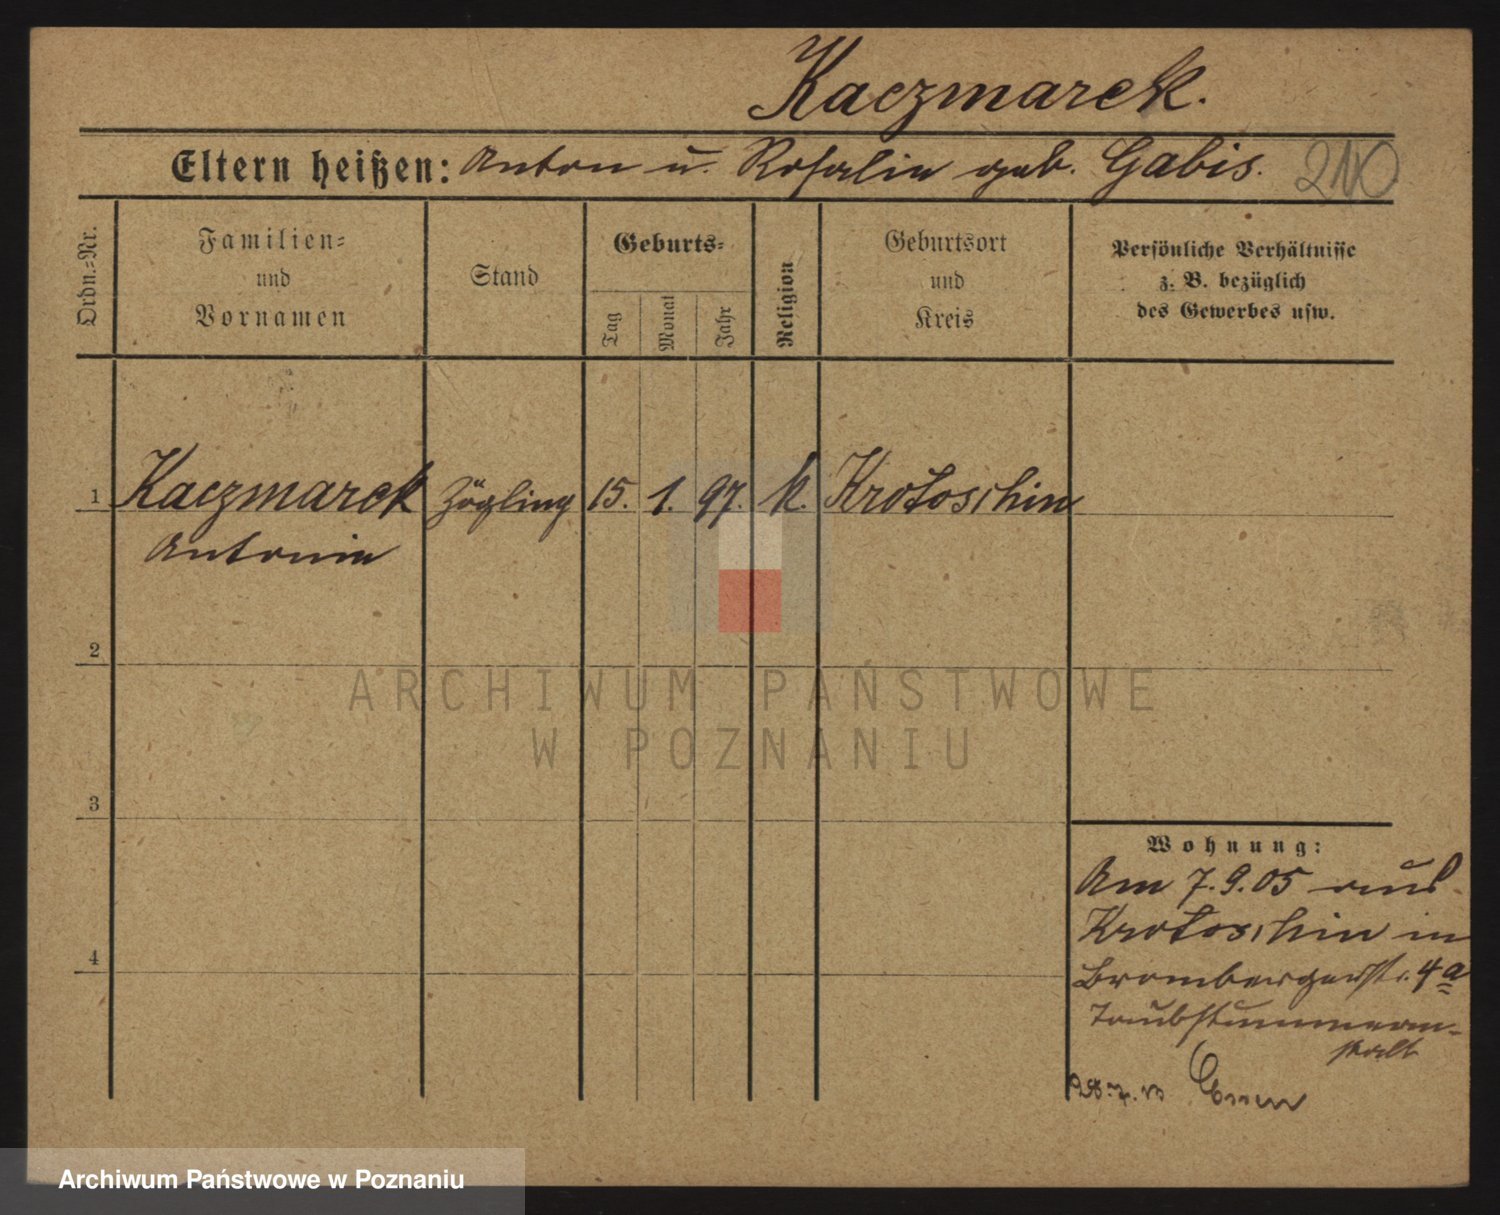 Kaczmarek.
Eltern heißen: Anton u. Rosalie geb. Gabis. 210
Ordn.-Nr.
Familien-
und
Vornamen
Stand
Geburts-
Tag
Monat
Jahr
Religion
Geburtsort
und
Kreis
Persönliche Verhältnisse
z. B. bezüglich
des Gewerbes usw.
1 Kaczmarek Zögling 15. 1. 97. k. Krotoschin
Antonie
2
ARCHIWUM PAŃSTWOWE
W POZNANIU
3
Wohnung:
Am 7.9.05 aus
Krotoschin in
4
Brombergerstr. 4a
Taubstummenan-
stalt
Archiwum Państwowe w Poznaniu